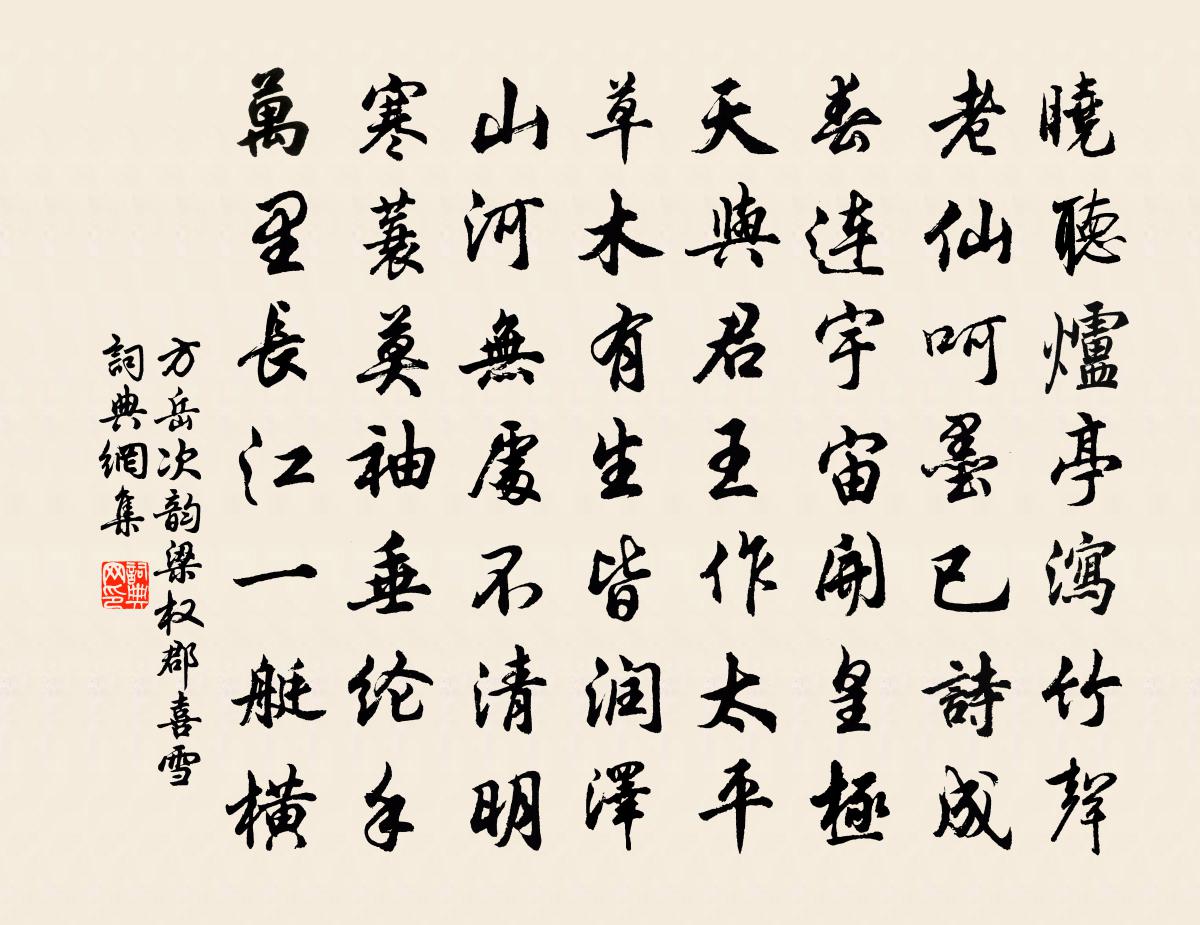 曉聽爐亭瀉竹聲
老仙呵墨已詩成
春連宇宙開皇極
天與君王作太平
草木有生皆润澤
山河無處不清明
寒蓑莫袖垂纶手
萬里長江一艇橫
方岳次韵梁权郡喜雪
詞典網集
詞典网印